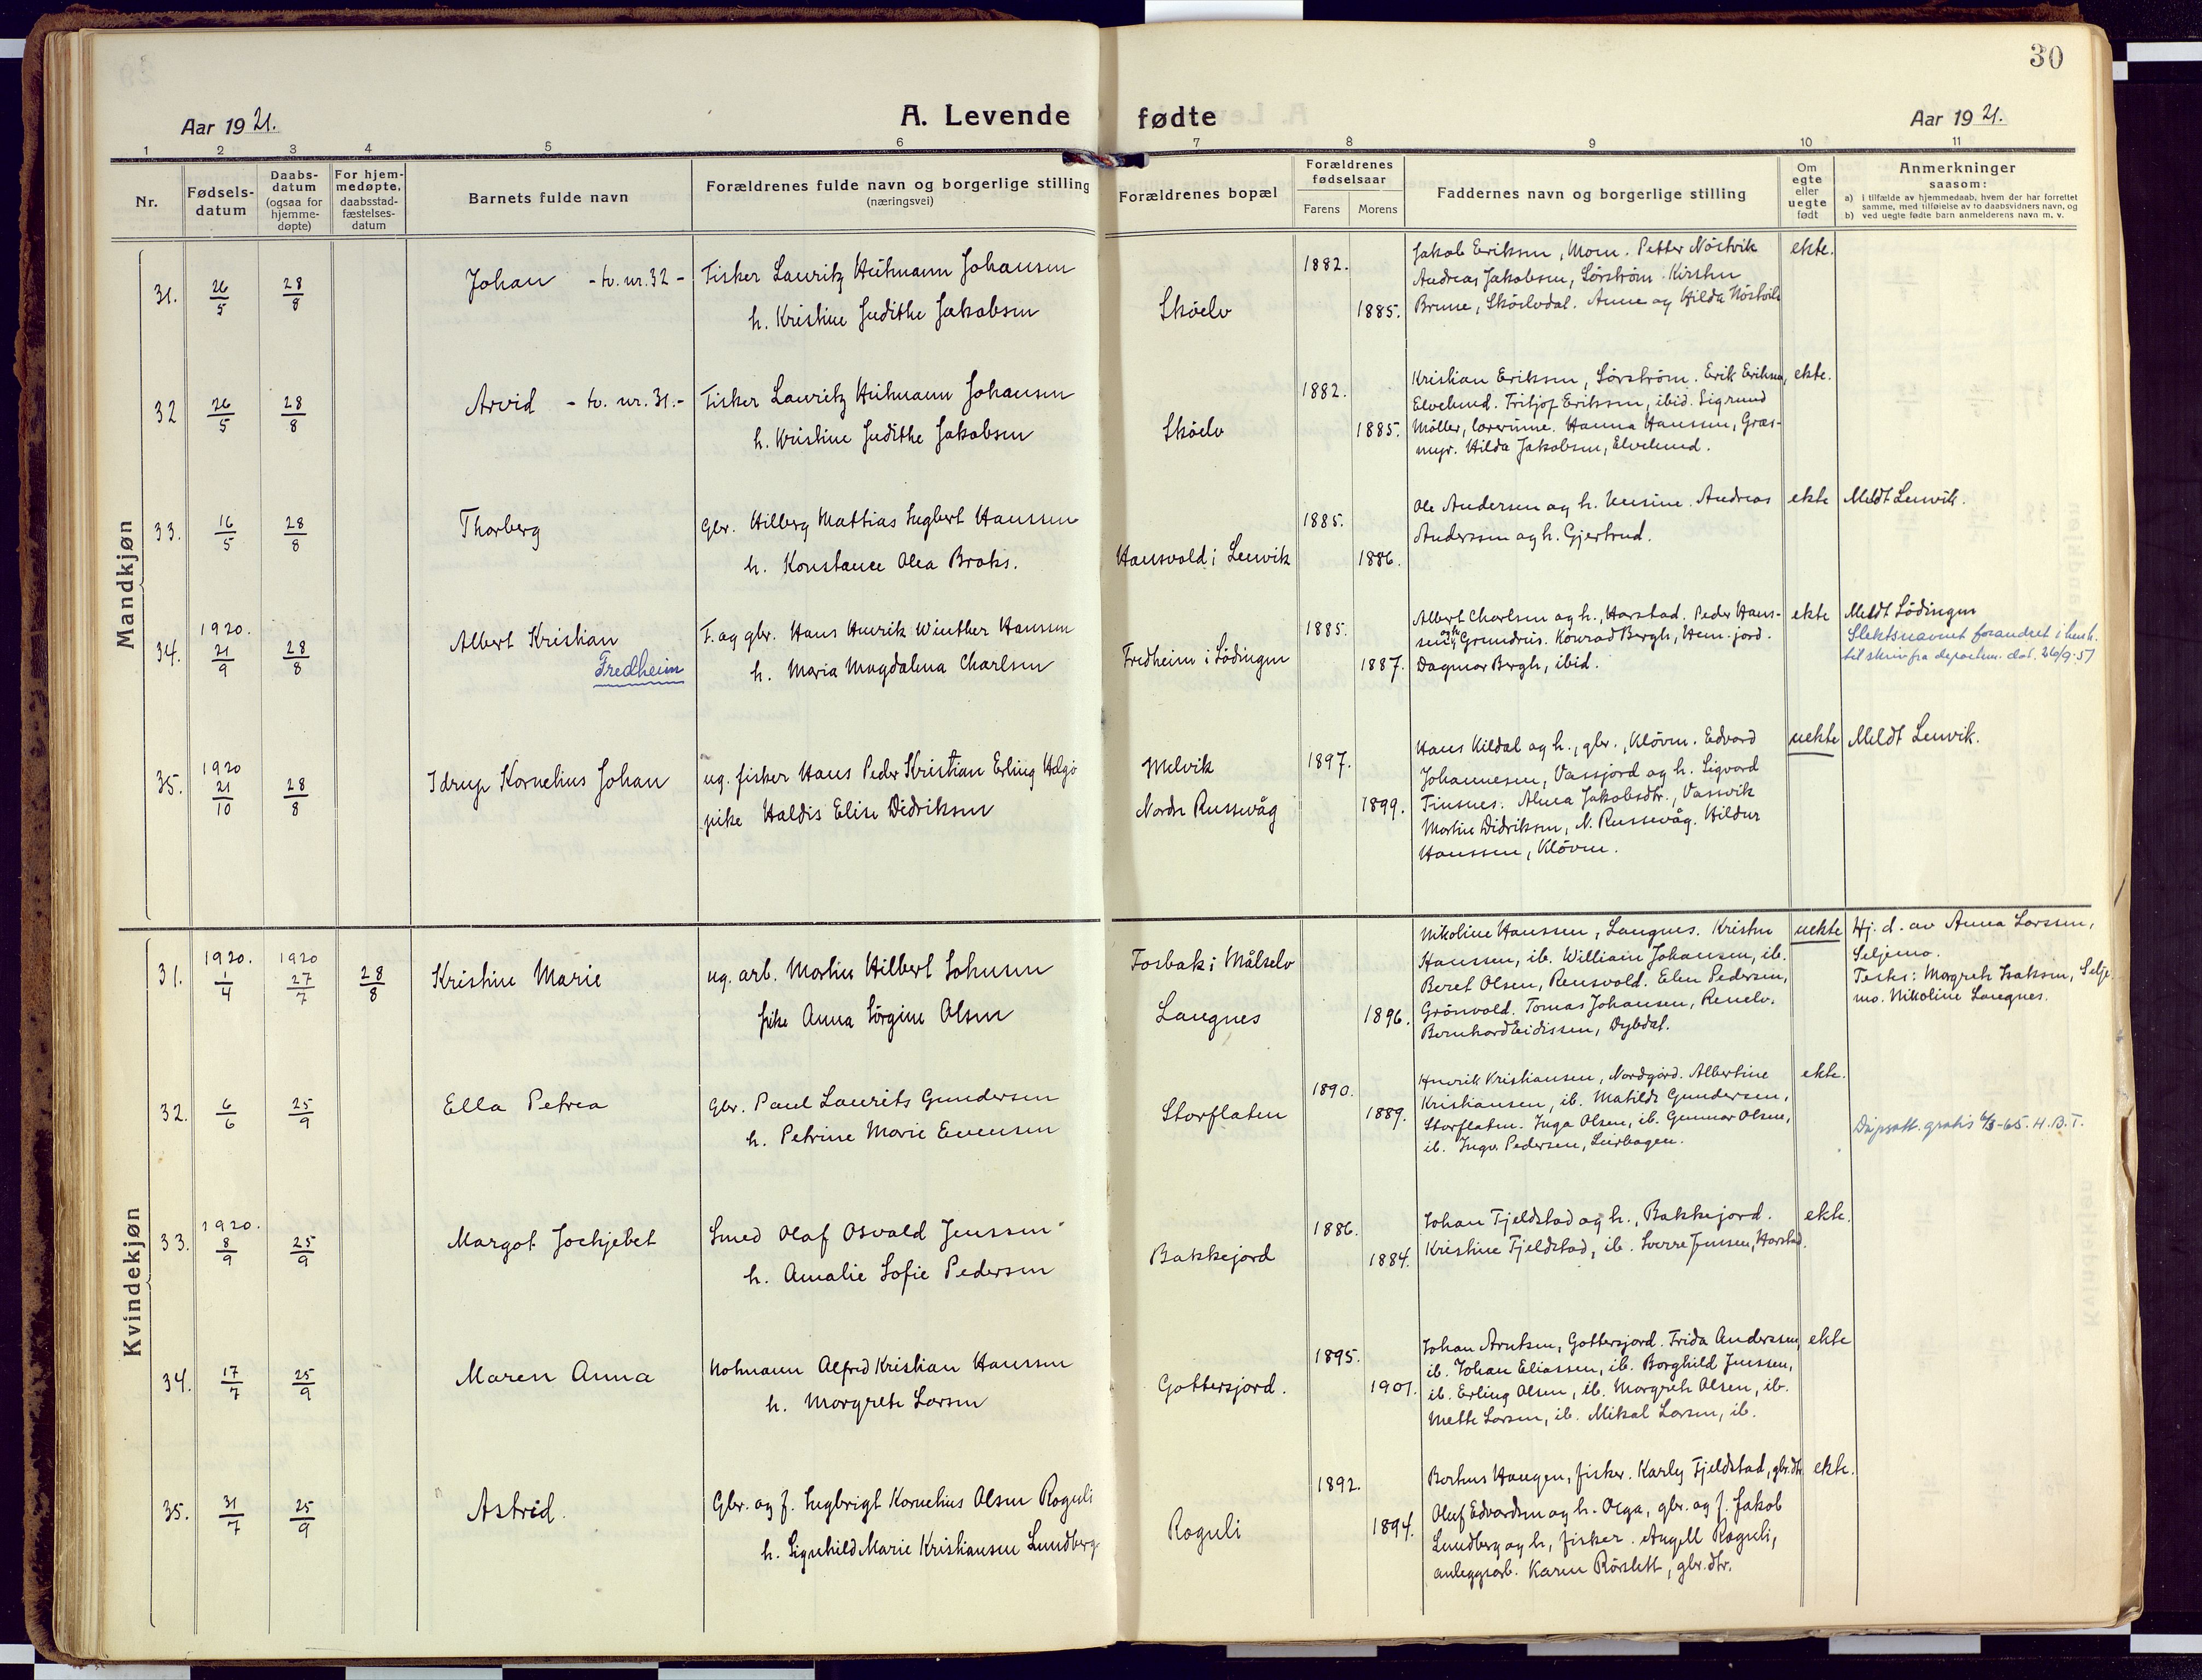 30
Aar 1921.
A. Levende fødte
Aar 1921.
1 2 3 4 5 6 7 8 9 10 11
Nr.
Fødsels-
datum
Daabs-
datum
(ogsaa for
hjemme-
døpte)
For hjem-
medøpte,
daabsstad-
fæstelses-
datum
Barnets fulde navn
Forældrenes fulde navn og borgerlige stilling
(næringsvei)
Forældrenes bopæl
Forældrenes
fødselsaar
Farens
Morens
Faddernes navn og borgerlige stilling
Om
egte
eller
uegte
født
Anmerkninger
saasom:
a) i tilfælde av hjemmedaab, hvem der har forrettet
samme, med tilføielse av to daabsvidners navn, og
b) ved uegte fødte barn anmelderens navn m. v.
Mandkjøn
31. 26/5 28/8 Johan - tv. nr. 32 -
Fisker Lauritz Hitmann Johansen
h. Kristine Judithe Jakobsen
Sköelv
1882.
1885.
Jakob Eriksen, Moen. Petter Nöstvik
Andreas Jakobsen, Sörström. Kirsten
Brune, Sköelvdal. Anne og Hilda Nöstvik
ekte.
32 26/5 28/8 Arvid - tv. nr. 31. -
Fisker Lauritz Hitmann Johansen
h. Kristine Judithe Jakobsen
Sköelv
1882.
1885.
Kristian Eriksen, Sörström. Erik Eriksen,
Elvelund. Fritjof Eriksen, ibid. Sigrund
Möller, lærerinne. Hanna Hanssen, Græs-
myr. Hilda Jakobsen, Elvelund.
ekte.
33. 16/5 28/8 Thorberg
Gbr. Hilberg Mattias Ingbert Hanssen
h. Konstance Olea Broks.
Hansvold i Lenvik
1885.
1886.
Ole Andersen og h. Andreas
Anderssen og h. Gjertrud.
ekte
Meldt Lenvik.
34. 1920. 21/9 28/8 Albert Kristian
Fredheim
F. og gbr. Hans Henrik Winther Hanssen
h. Maria Magdalena Charlsen
Fredheim i Lödingen
1885.
1887.
Albert Charlsen og h., Harstad. Peder Hans-
sen og h., Konrad Bergh, Hem. jord.
Dagmar Bergh, ibid.
ekte
Meldt Lödingen
Slektsnavnet forandret i henh.
til skriv fra departem. dat. 26/9-51
35. 1920 21/10 28/8 Idrup Kornelius Johan
ug. fisker Hans Peder Kristian Erling Helgö
pike Haldis Elise Didriksen
Melvik
Nordre Russevåg
1897.
1899.
Hans Kildal og h., gbr., Klöven. Edvard
Johannesen, Vassjord og h. Sigvard
Finsnes. Alma Jakobsdtr., Vassvik
Martin Didriksen, N. Russevåg. Hildur
Hanssen, Klöven.
uekte
Meldt Lenvik.
Kvindekjøn
31. 1920. 1/4 1920 27/7 28/8 Kristine Marie
ug. arb. Martin Hilbert Johnsen
pike Anna Jörgine Olsen
Fosbak i Målselv
Langnes
1896.
Nikoline Hanssen, Langnes. Kristen
Hanssen, ib. William Johansen, ib.
Beret Olsen, Rensvold. Elen Pedersen,
Grönvold. Tomas Johansen, Renelv.
Bernhard Eidissen, Dybdal.
uekte
Hj. d. av Anna Larssen,
Seljemo.
Testes: Margrete Isaksen, Selje
mo. Nikoline Langnes.
32. 6/6 25/9 Ella Petrea
Gbr. Paul Laurits Gundersen
h. Petrine Marie Evensen
Storflaten
1890.
1889.
Henrik Kristiansen, Nordgård. Albertine
Kristiansen, ib. Matilde Gundersen,
Storflaten. Inga Olsen, ib. Gunnar Olsen,
ib. Ingv. Pedersen, Leirbogen.
ekte.
Dåpsatt. gratis 6/3-65. H.B.T.
33. 1920. 8/9 25/9 Margot Jochjebet
Smed Olaf Osvald Jenssen
h. Amalie Sofie Pedersen
Bakkejord
1886.
1884.
Johan Fjeldstad og h., Bakkejord.
Kristine Fjeldstad, ib. Sverre Jenssen, Harstad.
ekte.
34. 17/7 25/9 Maren Anna
Nohmann Alfred Kristian Hanssen
h. Margrete Larsen
Gottersjord.
1895.
1901.
Johan Arntsen, Gottersjord. Frida Anderssen,
ib. Johan Eliassen, ib. Borghild Jenssen,
ib. Erling Olsen, ib. Margrete Olsen, ib.
Mette Larsen, ib. Mikal Larsen, ib.
ekte
35. 31/7 25/9 Astrid.
Gbr. og f. Ingbrigt Kornelius Olsen Roguli
h. Signhild Marie Kristiansen Lundberg
Roguli
1892.
1894.
Haugen, fisker. Karly Fjeldstad, gbr.dtr
Oluf Edvardsen og h. Olga, gbr. og f. Jakob
Lundberg og h, fisker. Angell Roguli,
anleggsarb. Karen Rörslett, gbr.dtr.
ekte.